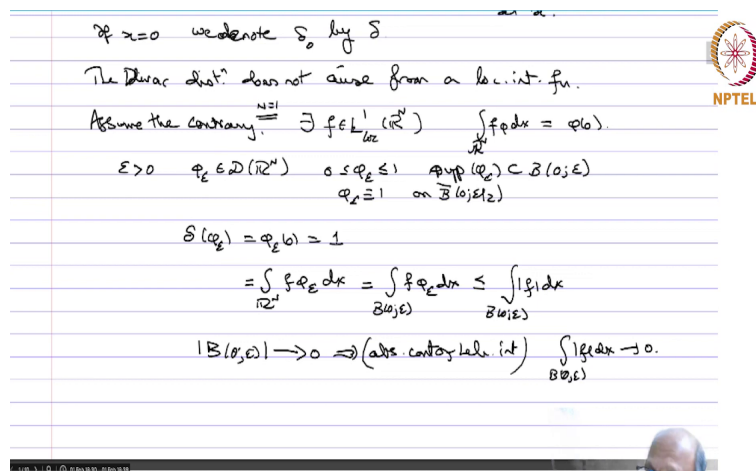 If x=0 we denote δ₀ by δ
The Dirac dist.ⁿ does not arise from a loc. int. fn.
NPTEL
N=1
Assume the contrary. ∃ f ∈ L¹_loc (ℝᴺ) ∫_ℝᴺ fφ dx = φ(0).
ε>0 φ_ε ∈ D(ℝᴺ) 0 ≤ φ_ε ≤ 1 supp(φ_ε) ⊂ B(0;ε)
φ_ε ≡ 1 on B̄(0;ε/2)
δ(φ_ε) = φ_ε(0) = 1
= ∫_ℝᴺ fφ_ε dx = ∫_B(0;ε) fφ_ε dx ≤ ∫_B(0;ε) |f| dx
|B(0;ε)| → 0 ⇒ (abs. cont. of Leb. int) ∫_B(0;ε) |f| dx → 0.